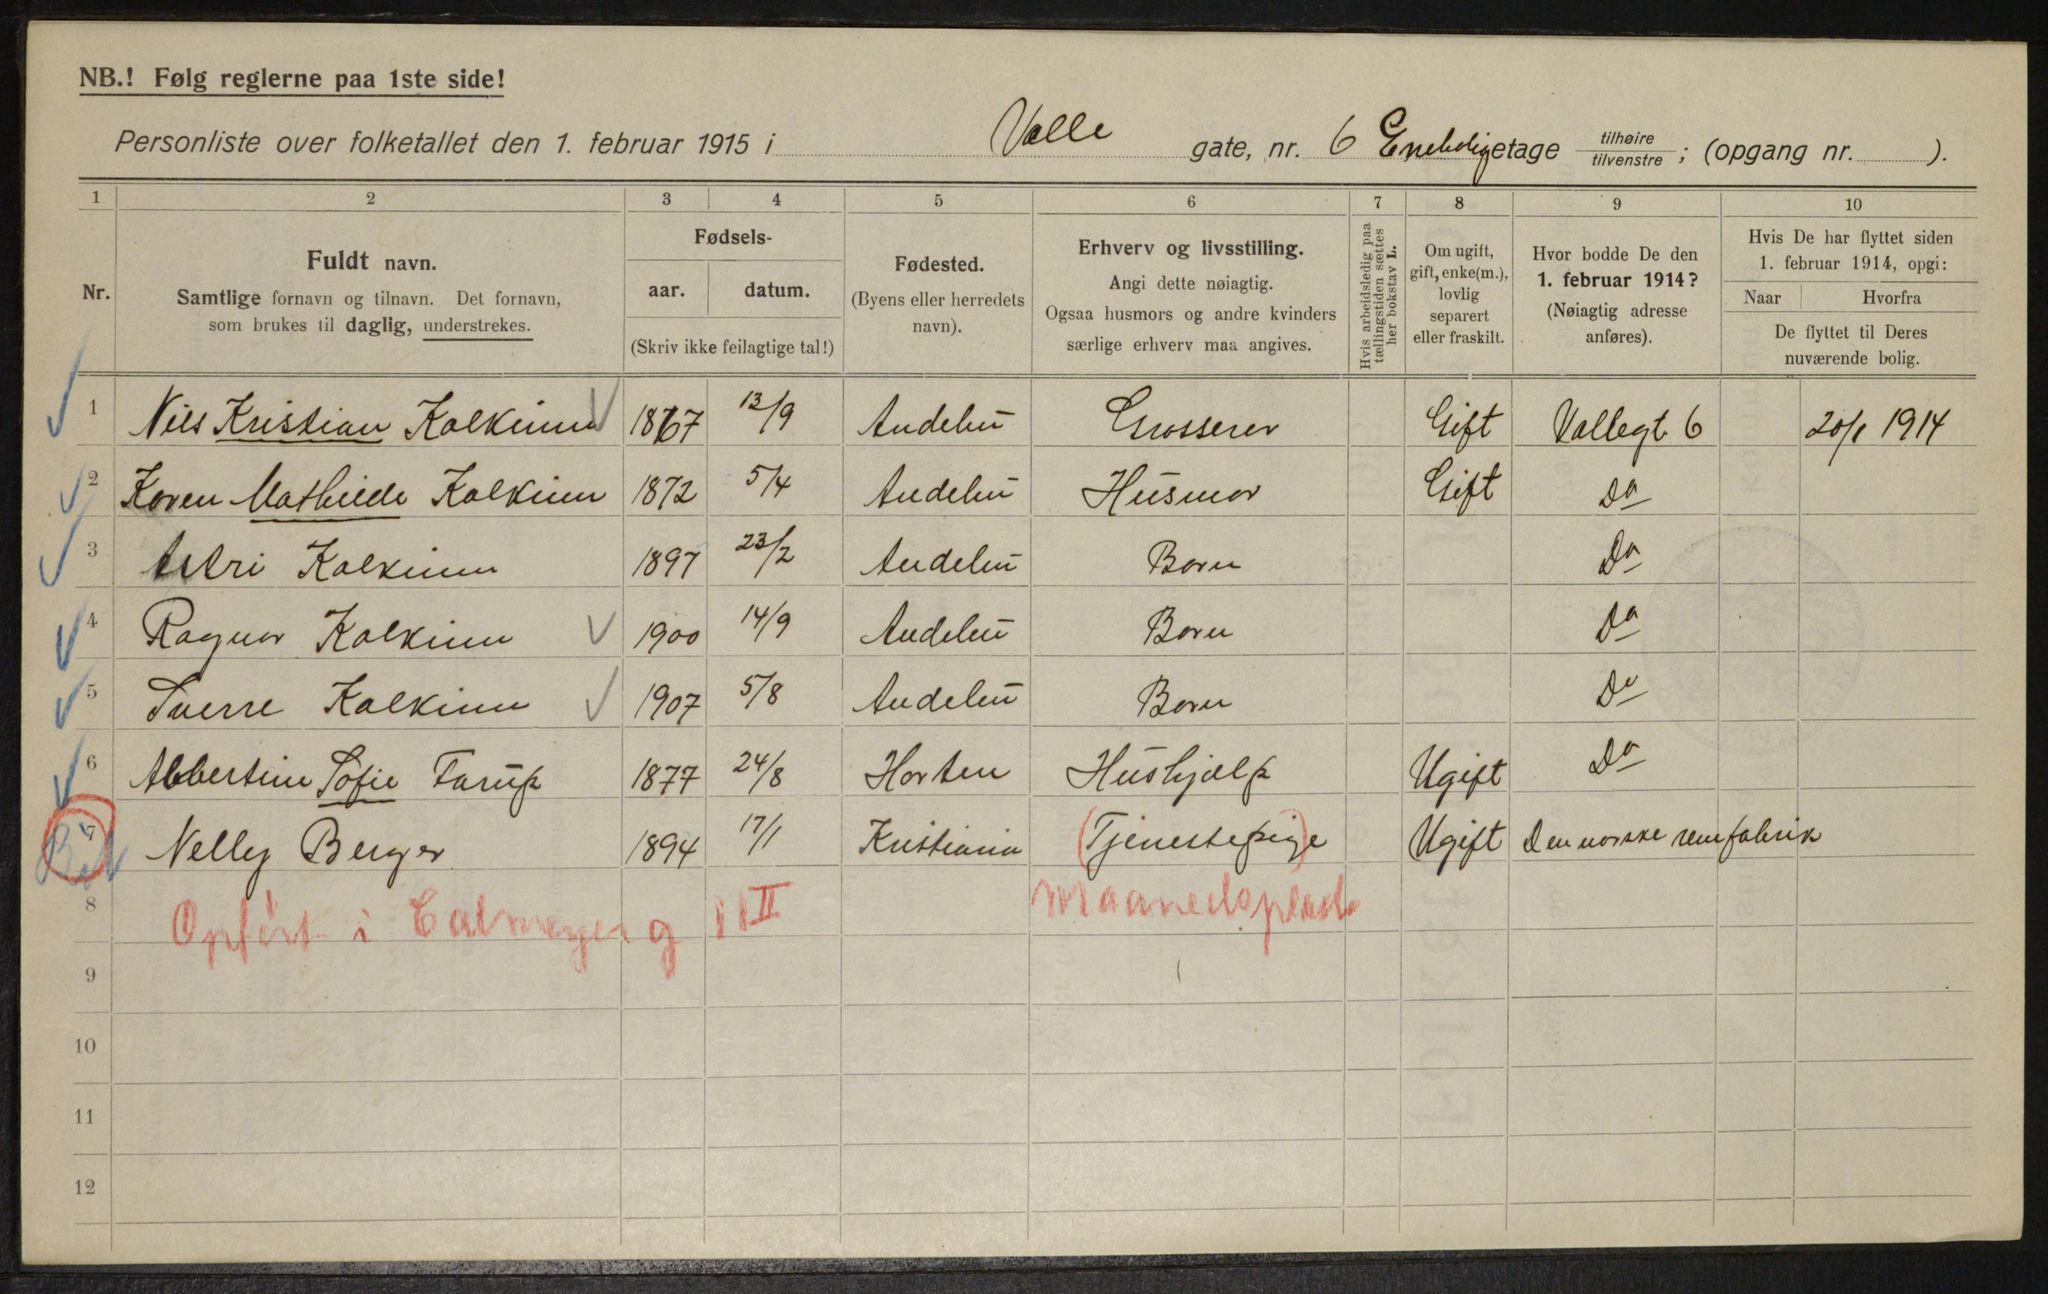 NB.! Følg reglerne paa 1ste side!
Personliste over folketallet den 1. februar 1915 i Valle gate, nr. 6 Enebolig etage tilhøire / tilvenstre ; (opgang nr. ).
1 2 3 4 5 6 7 8 9 10
Nr.
Fuldt navn.
Samtlige fornavn og tilnavn. Det fornavn,
som brukes til daglig, understrekes.
Fødsels-
aar. datum.
(Skriv ikke feilagtige tal!)
Fødested.
(Byens eller herredets
navn).
Erhverv og livsstilling.
Angi dette nøiagtig.
Ogsaa husmors og andre kvinders
særlige erhverv maa angives.
Hvis arbeidsledig paa
tællingstiden sættes
her bokstav L.
Om ugift,
gift, enke(m.),
lovlig
separert
eller fraskilt.
Hvor bodde De den
1. februar 1914?
(Nøiagtig adresse
anføres).
Hvis De har flyttet siden
1. februar 1914, opgi:
Naar Hvorfra
De flyttet til Deres
nuværende bolig.
1 Nils Kristian Kalkinn 1867 13/9 Andebu Grosserer Gift Vallegt 6 20/1 1914
2 Karen Mathilde Kalkinn 1872 5/4 Andebu Husmor Gift Do
3 Astri Kalkinn 1897 23/2 Andebu Barn Do
4 Ragnar Kalkinn 1900 14/9 Andebu Barn Do
5 Sverre Kalkinn 1907 5/8 Andebu Barn Do
6 Albertine Sofie Tarup 1877 24/8 Horten Hushjælp Ugift Do
7 Nelly Berger 1894 17/1 Kristiania (Tjenestepige) Ugift Den norske remfabrik
8 Opført i Calmeyer g 11 II Maanedsplads
9
10
11
12